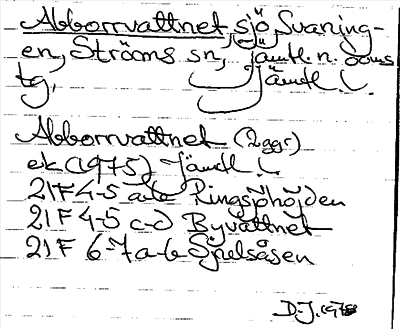 Abborrvattnet, sjö, Svaning-
en, Ströms sn, Jämtl. n. doms
tg, Jämtl. L.
Abborrvattnet (2 ggr)
ek (1975) Jämtl. L
21F 4-5 a-b Ringsjöhöjden
21F 4-5 c-d Byvattnet
21F 6-7 a-b Sjulsåsen
D.J. 1978